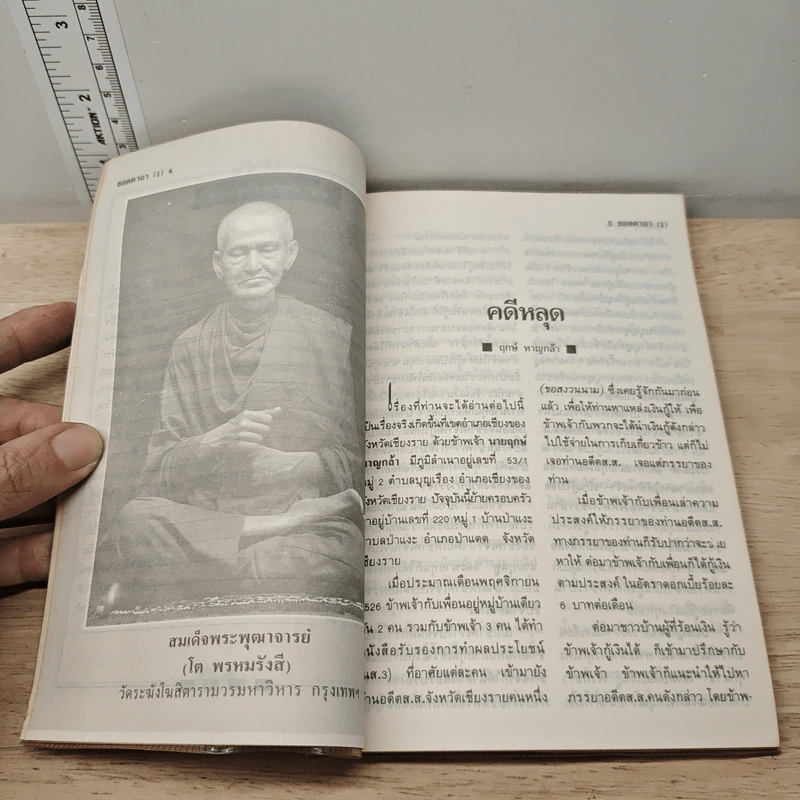 3
8
7
6
2
5
4
3
AKTION
ยอดคาถา (1) 4
สมเด็จพระพุฒาจารย์
(โต พรหมรังสี)
วัดระฆังโฆสิตารามวรมหาวิหาร กรุงเทพฯ
5 ยอดคาถา (1)
คดีหลุด
ฤกษ์ หาญกล้า
เรื่องที่ท่านจะได้อ่านต่อไปนี้
เป็นเรื่องจริงเกิดขึ้นที่เขตอำเภอเชียงของ
จังหวัดเชียงราย ด้วยข้าพเจ้า นายฤกษ์
หาญกล้า มีภูมิลำเนาอยู่เลขที่ 53/1
หมู่ 2 ตำบลบุญเรือง อำเภอเชียงของ
จังหวัดเชียงราย ปัจจุบันนี้ย้ายครอบครัว
อยู่บ้านเลขที่ 220 หมู่ 1 บ้านป่าแงะ
ตำบลป่าแงะ อำเภอป่าแดด จังหวัด
เชียงราย
เมื่อประมาณเดือนพฤศจิกายน
2526 ข้าพเจ้ากับเพื่อนอยู่หมู่บ้านเดียว
กัน 2 คน รวมกับข้าพเจ้า 3 คน ได้ทำ
หนังสือรับรองการทำผลประโยชน์
(นส.3) ที่อาศัยแต่ละคน เข้ามายัง
บ้านอดีตส.ส.จังหวัดเชียงรายคนหนึ่ง
(ขอสงวนนาม) ซึ่งเคยรู้จักกันมาก่อน
แล้ว เพื่อให้ท่านหาแหล่งเงินกู้ให้ เพื่อ
ข้าพเจ้ากับพวกจะได้นำเงินกู้ดังกล่าว
ไปใช้จ่ายในการเก็บเกี่ยวข้าว แต่ก็ไม่
เจอท่านอดีตส.ส. เจอแต่ภรรยาของ
ท่าน
เมื่อข้าพเจ้ากับเพื่อนเล่าความ
ประสงค์ให้ภรรยาของท่านอดีตส.ส.
ทางภรรยาของท่านก็รับปากว่าจะช่วย
หาให้ ต่อมาข้าพเจ้ากับเพื่อนก็ได้กู้เงิน
ตามประสงค์ ในอัตราดอกเบี้ยร้อยละ
6 บาทต่อเดือน
ต่อมาชาวบ้านผู้ที่ร้อนเงิน รู้ว่า
ข้าพเจ้ากู้เงินได้ ก็เข้ามาปรึกษากับ
ข้าพเจ้า ข้าพเจ้าก็แนะนำให้ไปหา
ภรรยาอดีตส.ส.คนดังกล่าว โดยข้าพ-